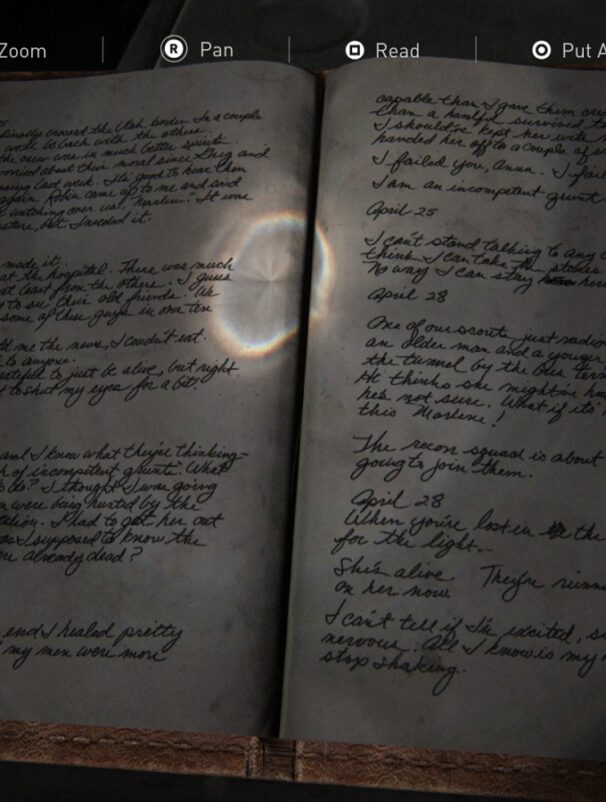 Zoom
R Pan
Read
Put A
finally crossed the Utah border. In a couple
we'll be back with the others.
the crew are in much better spirits.
worried about their moral since
last week. It's good to hear them
again. Robin came up to me and said
watching over us, Marlene." It were
but I needed it.
made it.
at the hospital. There was much
at least from the others. I guess
to see their old friends. We
some of these guys in one ten
ld me the news, I couldn't eat.
to anyone.
grateful to just be alive, but right
t to shut my eyes for a bit!
and I know what they're thinking-
h of incompetent grunts. What
to do? I thought I was going
were being hunted by the
I had to get her out
was I supposed to know the
were already dead?
end I healed pretty
my men were more
capable than I gave them
than a handful survived
I should've kept her with
handed her off to a couple of
I failed you, Anna. I
I am an incompetent grunt
April 25
I can't stand talking to any
think I can take the
No way I can stay here
April 28
One of our scouts just
an older man and a younger
the tunnel by the bus
He thinks she might've
he's not sure. What if it's
this Marlene!
The recon squad is about
going to join them.
April 28
When you're lost in the
for the light..
She's alive. They're
on her now.
I can't tell if I'm excited,
nervous. All I know is my
stop shaking.